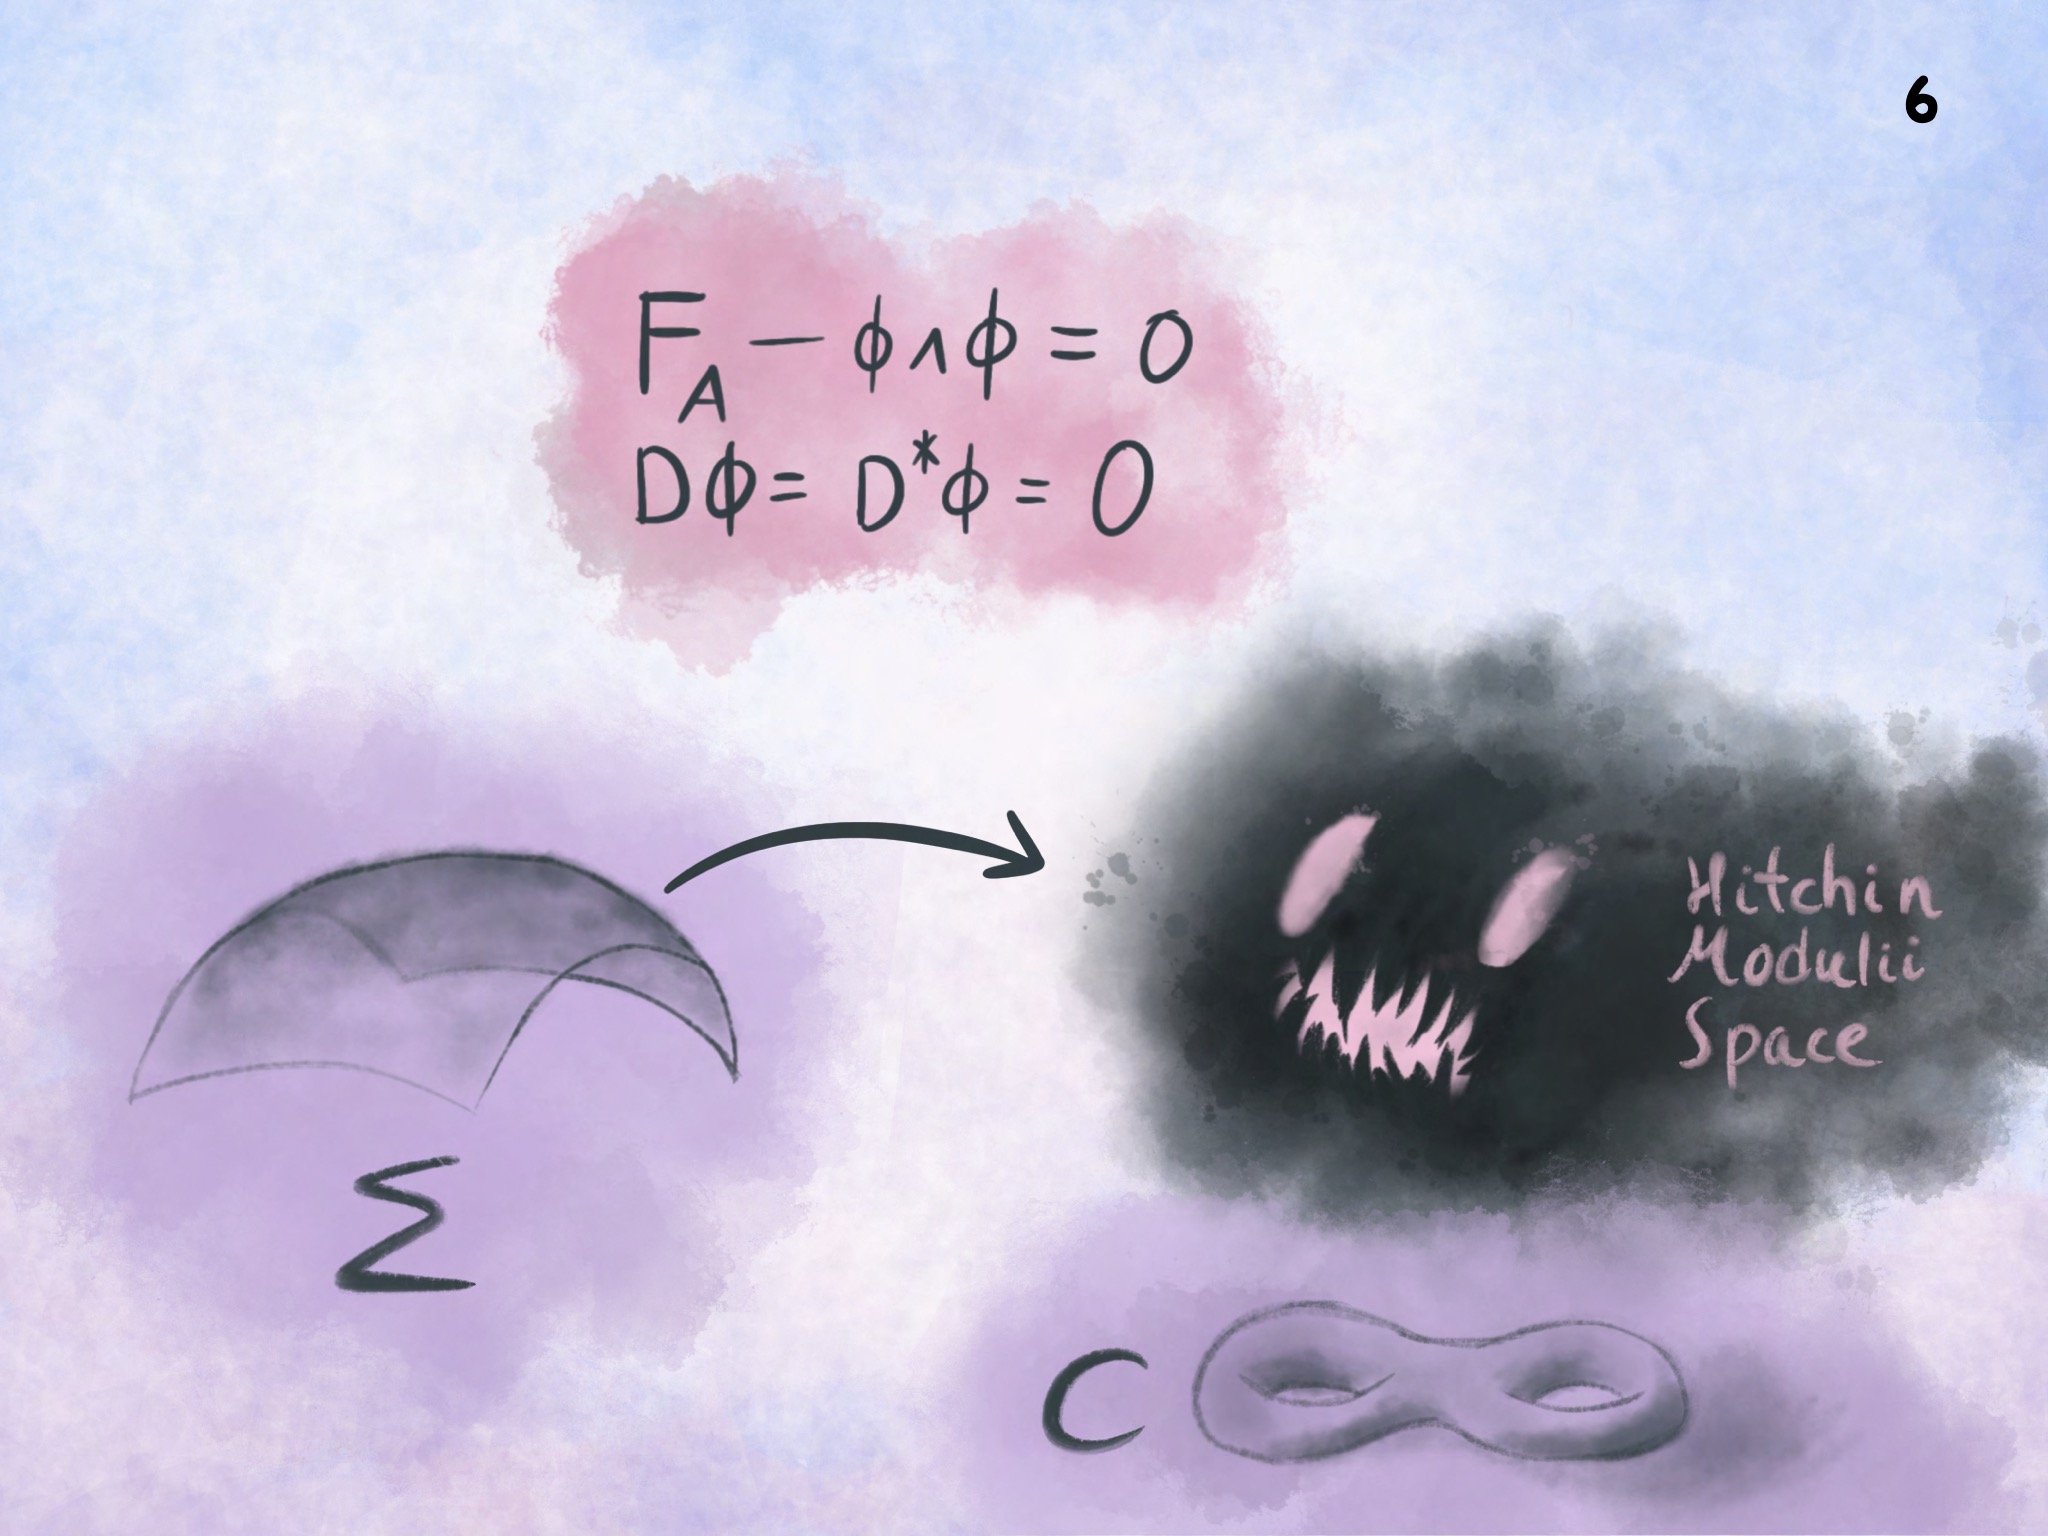 6
F_A − ϕ∧ϕ = 0
Dϕ = D*ϕ = 0
Hitchin
Modulii
Space
Σ
C